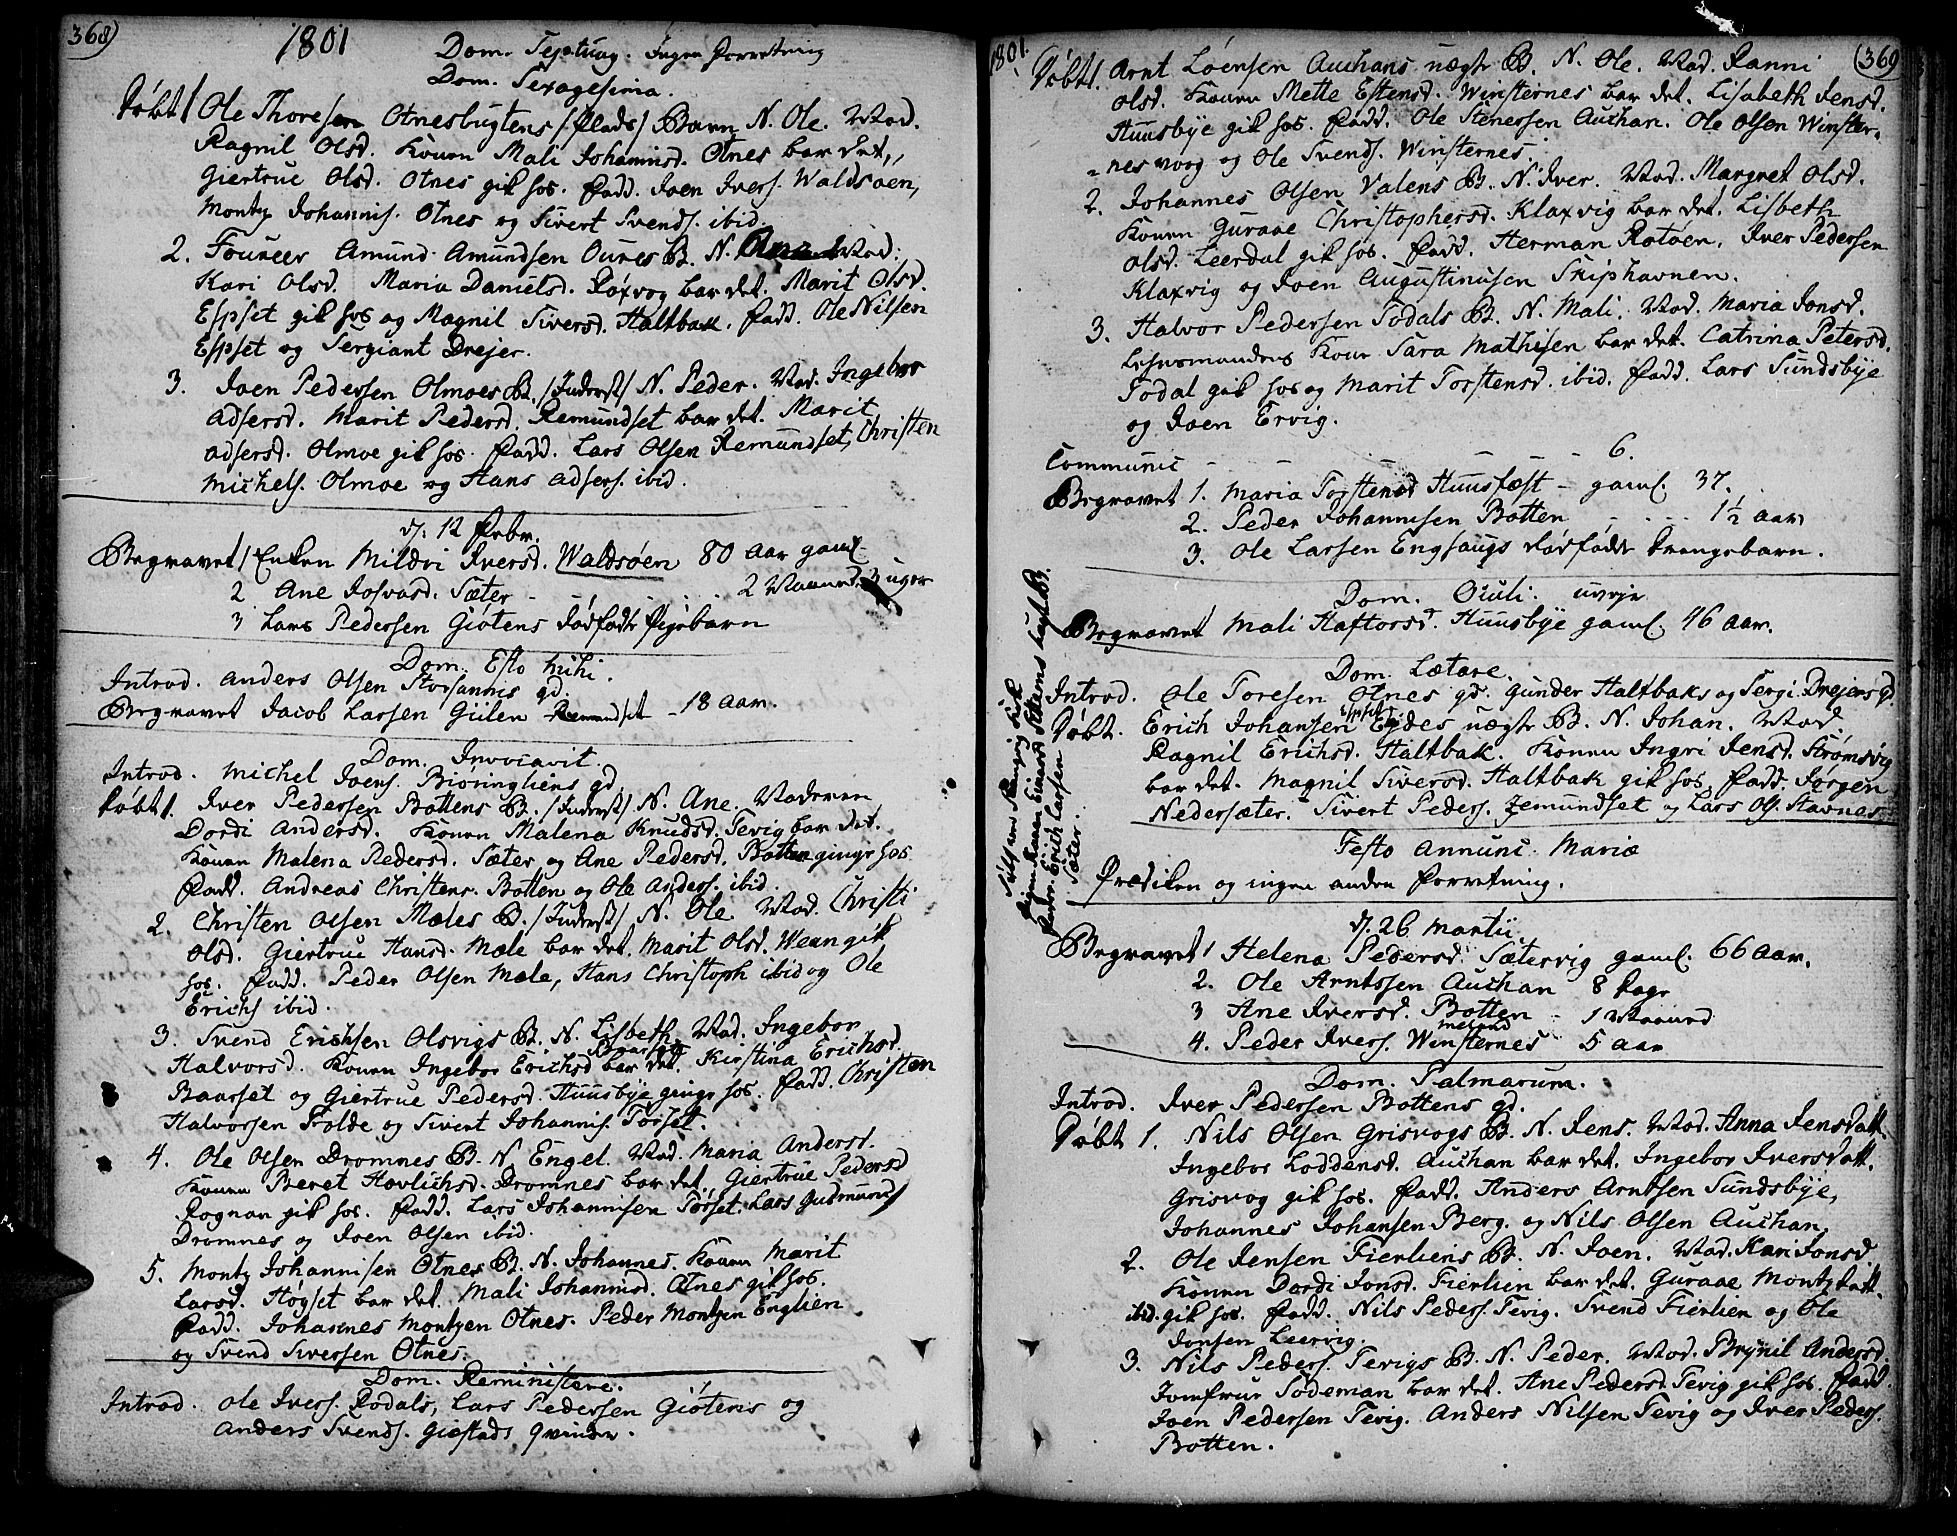 368)
1801
Dom. Septuag. Ingen Forretning
Dom. Sexagesima.
Døbt 1 Ole Thoresen Otnesbugtens /Plads/ Barn N. Ole. Mod.
Ragnil Olsd. Konen Mali Johannisd. Otnes bar det,
Giertrue Olsd. Otnes gik hos. Fadd. Joen Ivers. Waldsøen,
Montz Johannis. Otnes og Sivert Svends. ibid.
2. Foureer Amund Amundsen Oures B. N. Mod.
Kari Olsd. Maria Danielsd. Roxvog bar det. Marit Olsd.
Espset gik hos og Magnil Siversd. Haltbak. Fadd. Ole Nilsen
Espset og Sergiant Drejer.
3. Joen Pedersen Olmoes B. /Inderst/ N. Peder. Mod. Ingebor
Adsersd. Marit Pedersd. Remundset bar det. Marit
Adsersd. Olmoe gik hos. Fadd. Lars Olsen Remundset, Christen
Michels. Olmoe og Hans Adsers. ibid.
d. 12 Febr.
Begravet 1 Enken Mildri Iversd. Waldsøen 80 Aar gaml.
2 Ane Josvasd. Sæter - - - 2 Maaned. 3 uger
3 Lars Pedersen Giøtens dødfødte Pigebarn
Dom. Esto mihi.
Introd. Anders Olsen Storsannes qd.
Begravet Jacob Larsen Gülen Remundset - 18 Aar.
Dom. Invocavit.
Introd. Michel Joens. Biøringliens qd
Døbt 1. Iver Pedersen Bottens B. /Inderst/ N. Ane. Moderen
Dordi Andersd. Konen Malena Knudsd. Tevig bar det.
Konen Malena Pedersd. Sæter og Ane Pedersd. Botten ginge hos.
Fadd. Andreas Christens. Botten og Ole Anders. ibid.
2. Christen Olsen Mæles B. /Inderst/ N. Ole. Mod. Christi
Olsd. Giertrue Hansd. Mæle bar det. Marit Olsd. Wean gik
hos. Fadd. Peder Olsen Mæle, Hans Christoph ibid og Ole
Erichs ibid.
3. Svend Erichsen Olsvigs B. N. Lisbeth. Mod. Ingebor
Halvorsd. Konen Ingebor Erichsd bar det. Kirstina Erichsd.
Baarset og Giertrue Pedersd. Huusbye ginge hos. Fadd. Christen
Halvorsen Folde og Sivert Johannis. Torset.
4. Ole Olsen Dromnes B. N. Engel. Mod. Maria Andersd.
Konen Beret Hovlichsd. Dromnes bar det. Giertrue Pedersd
Rognan gik hos. Fadd. Lars Johannisen Torset. Lars Gudmunds
Dromnes og Joen Olsen ibid.
5. Montz Johannisen Otnes B. N. Johannes. Konen Marit
Larsd. Høgset bar det. Mali Johannisd. Otnes gik hos.
Fadd. Johannes Montzen Otnes. Peder Montzen Englien.
og Svend Siversen Otnes.
Dom. Reminiscere.
Introd. Ole Ivers. Rodals, Lars Pedersen Giøtens og
Anders Svends. Giestads qvinder.
1801.
(369
Døbt 1. Arnt Loensen Auchans uægte B. N. Ole. Mod. Ranni
Olsd. Konen Mette Estensd. Winsternes bar det. Lisabeth Jensd.
Huusbye gik hos. Fadd. Ole Stenersen Auchan. Ole Olsen Winster-
nes voog og Ole Svends. Winsternes.
2. Johannes Olsen Valens B. N. Iver. Mod. Margret Olsd.
Konen Guraae Christophersd. Klaxvig bar det. Lisbeth
Olsd. Leerdal gik hos. Fadd. Herman Rotøen. Iver Pedersen
Klaxvig og Joen Augustinusen Skiphavnen.
3. Halvor Pedersen Todals B. N. Mali. Mod. Maria Jonsd.
Lehnsmandens Kone Sara Mathisen bar det. Catrina Petersd.
Todal gik hos og Marit Torstensd. ibid. Fadd. Lars Sundsbye
og Joen Ervig.
Communic - - - - - 6.
Begravet 1. Maria Torstensd Huusfæst - gaml. 37.
2. Peder Johannisen Botten - - - 1½ Aar
3. Ole Larsen Enghaugs dødfødde Drengebarn.
Dom. Oculi. uveje
Begravet Mali Haftorsd. Huusbye gaml. 46 Aar.
Dom. Lætare.
Introd. Ole Toresen Otnes qd. Gunder Haltbaks og Sergi. Drejers qd
Døbt. Erich Johansen Espset Eydes uægte B. N. Johan. Mod.
Ragnil Erichsd. Haltbak. Konen Ingri Jensd. Strømsvig
bar det. Magnil Siversd. Haltbak gik hos. Fadd. Jørgen
Nedersæter. Sivert Peders. Jemundset og Lars Ols. Stavnes.
Festo Annunc. Mariæ
Prædiken og ingen anden Forretning.
d. 26 Martii
Begravet 1 Helena Pedersd. Sætervig gaml. 66 Aar.
2. Ole Arntssen Auchan 8 Dage
3 Ane Iversd. Botten - 1 Maaned
4. Peder Ivers. Winsternes 5 Aar
Dom. Palmarum.
Introd. Iver Pedersen Bottens qd.
Døbt 1. Nils Olsen Grisvogs B. N. Jens. Mod. Anna Jensdatt.
Ingebor Loddensd. Auchan bar det. Ingebor Iversdatt.
Grisvog gik hos. Fadd. Anders Arntsen Sundsbye,
Johannes Johansen Berg. og Nils Olsen Auchan.
2. Ole Jensen Fierliens B. N. Joen. Mod. Kari Jonsd.
Konen Dordi Jonsd. Fierlien bar det. Guraae Montzdatt.
ibid. gik hos. Fadd. Nils Peders. Tevig. Svend Fierlien og Ole
Jonsen Leervig.
3. Nils Peders. Tevigs B. N. Peder. Mod. Brÿnil Andersd.
Jomfrue Sodeman bar det. Ane Pedersd Tevig gik hos. Fadd.
Joen Pedersen Tevig. Anders Nilsen Tevig og Iver Peders.
Botten.
Fader Erich Larsen
Sæter.